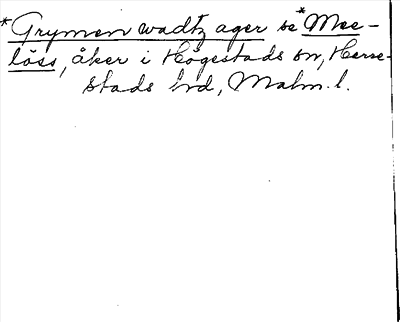 *Grymen wadtz ager se *Mee-
löss, åker i Högestads sn, Herre-
stads hd, Malm. l.